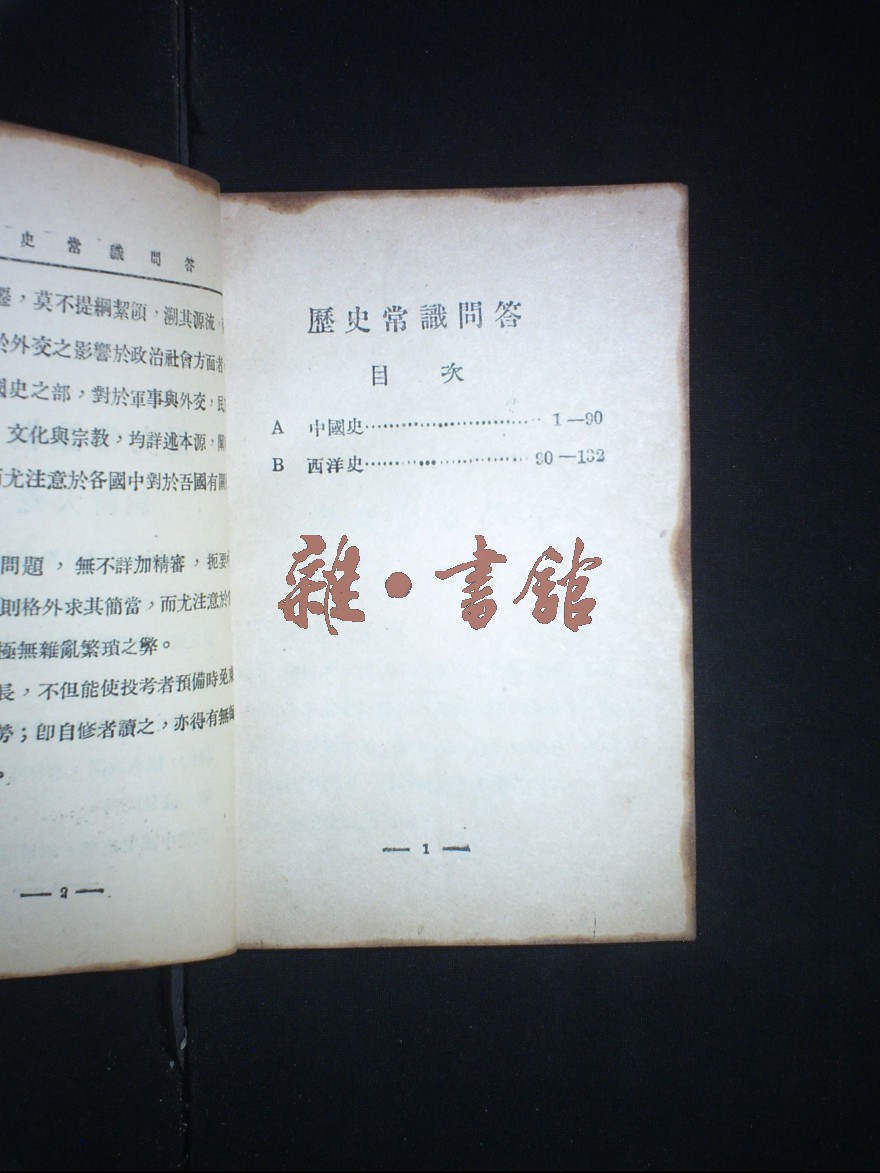 史常識問答
，莫不提綱挈領，溯其源流，
於外交之影響於政治社會方面者
國史之部，對於軍事與外交，民
文化與宗教，均詳述本源，闡
而尤注意於各國中對於吾國有關
問題，無不詳加精審，扼要
則格外求其簡當，而尤注意於
極無雜亂繁瑣之弊。
長，不但能使投考者預備時免
勞；卽自修者讀之，亦得有無
。
— 2 —
歷史常識問答
目 次
A 中國史 1—90
B 西洋史 90—132
雜·書館
— 1 —